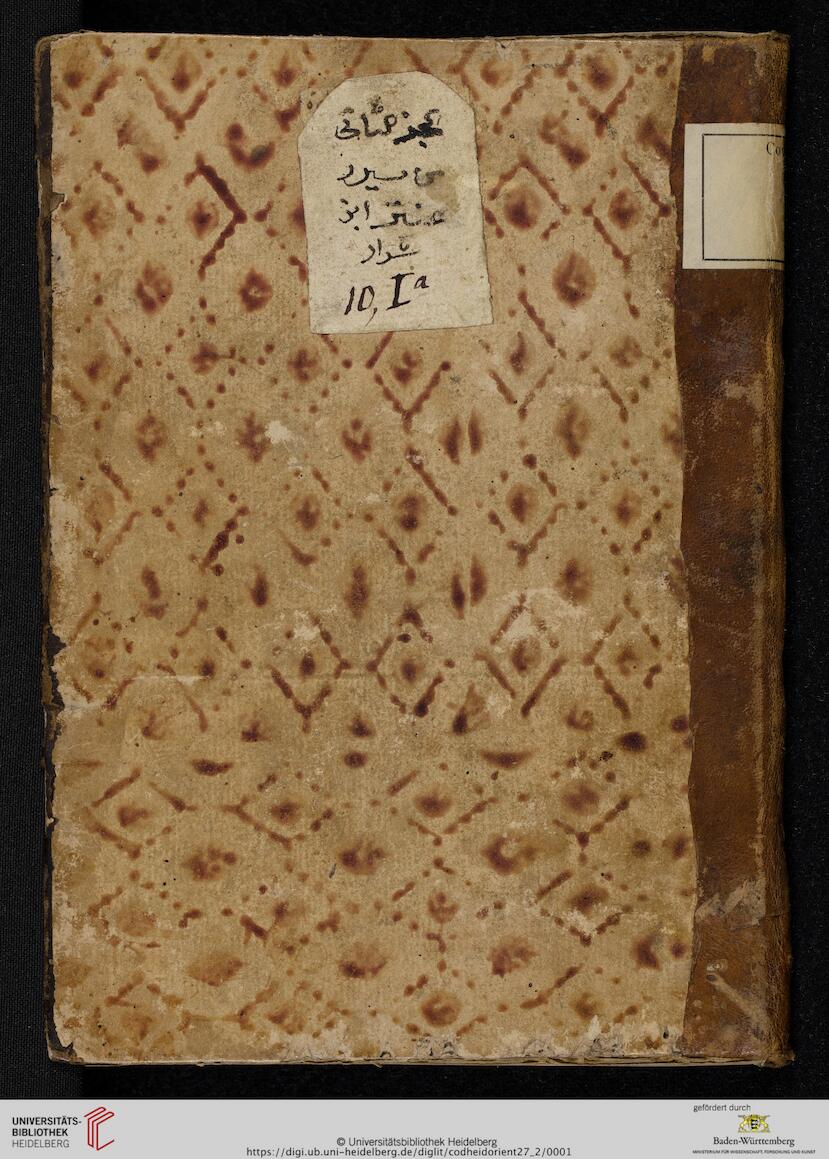 من
عنتر ابن
شداد
10, Iª
Co
UNIVERSITÄTS-
BIBLIOTHEK
HEIDELBERG
© Universitätsbibliothek Heidelberg
https://digi.ub.uni-heidelberg.de/diglit/codheidorient27_2/0001
gefördert durch
Baden-Württemberg
MINISTERIUM FÜR WISSENSCHAFT, FORSCHUNG UND KUNST